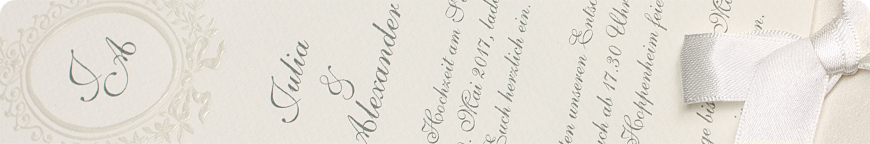 J A
Julia
&
Alexander
Hochzeit am
Mai 2017, lad
Euch herzlich ein.
unseren Entsc
ab 17.30 Uhr
Hoppenheim feie
bis
Mai